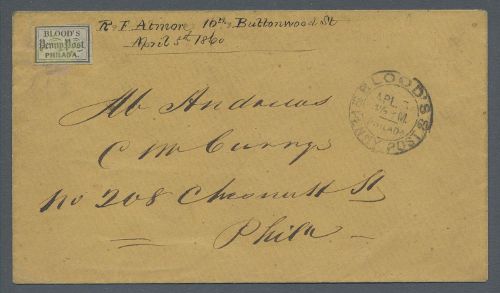 BLOOD'S
Penny Post
PHILAD'A.
R. F. Atmore, 10th, Buttonwood St
April 5th 1860
BLOOD'S
APL
PHILADA
PENNY POST
Andrews
C M
No 208 Chesnutt St
Phila